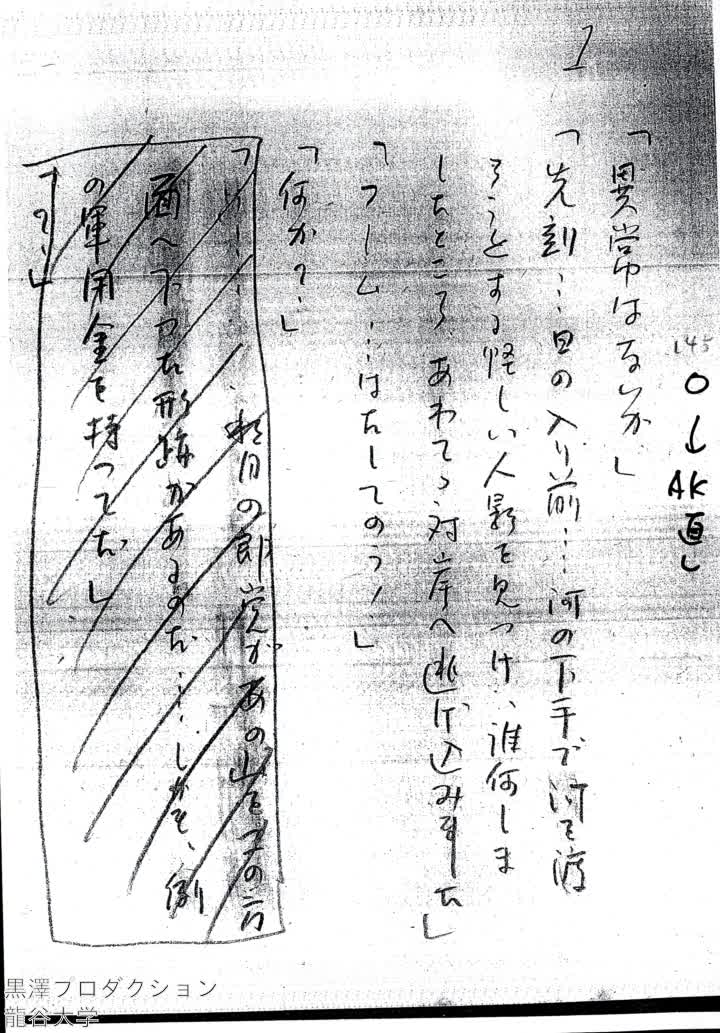 1
145
O→AK直し
「異常はないか」
「先刻…日の入り前…河の下手で河を渡
ろうとする怪しい人影を見つけ、誰何しま
したところ、あわてゝ対岸へ逃げ込みました」
「フーム…はたしてのう…」
「何か?…」
「…秋月の郎党があの山を
面へ下つた形跡があるのだ……しかも、例
の軍用金を持つてだ」
「?…」
黒澤プロダクション
龍谷大学